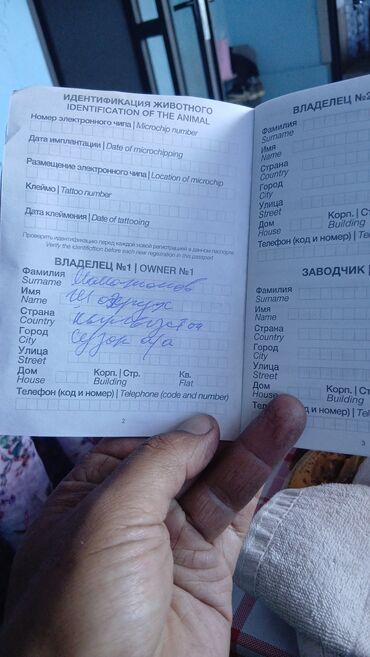 ИДЕНТИФИКАЦИЯ ЖИВОТНОГО
IDENTIFICATION OF THE ANIMAL
Номер электронного чипа | Microchip number
Дата имплантации | Date of microchipping
Размещение электронного чипа | Location of microchip
Клеймо | Tattoo number
Дата клеймения | Date of tattooing
Проверять идентификацию перед каждой новой регистрацией в данном паспорте
Verify the identification before each new registration in this passport
ВЛАДЕЛЕЦ №1 | OWNER №1
Фамилия
Surname
Имя
Name
Страна
Country
Город Сузак
City
Улица
Street
Дом Корп. | Стр. Кв.
House Building Flat
Телефон (код и номер) | Telephone (code and number)
2
ВЛАДЕЛЕЦ №2
Фамилия
Surname
Имя
Name
Страна
Country
Город
City
Улица
Street
Дом Корп. | Стр.
House Building
Телефон (код и номер) |
ЗАВОДЧИК |
Фамилия
Surname
Имя
Name
Страна
Country
Город
City
Улица
Street
Дом Корп. | Стр.
House Building
(код и номер) | Te
3